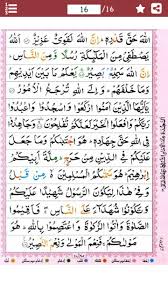 16 /16
اللّٰهَ حَقَّ قَدْرِهٖ ؕ اِنَّ اللّٰهَ لَقَوِیٌّ عَزِیْزٌ ۝ اَللّٰهُ
یَصْطَفِیْ مِنَ الْمَلٰٓئِكَةِ رُسُلًا وَّمِنَ النَّاسِ ؕ
اِنَّ اللّٰهَ سَمِیْعٌۢ بَصِیْرٌ ۝ یَعْلَمُ مَا بَیْنَ اَیْدِیْهِمْ
وَمَا خَلْفَهُمْ ؕ وَاِلَى اللّٰهِ تُرْجَعُ الْاُمُوْرُ ۝ یٰۤاَیُّهَا
الَّذِیْنَ اٰمَنُوا ارْكَعُوْا وَاسْجُدُوْا وَاعْبُدُوْا
رَبَّكُمْ وَافْعَلُوا الْخَیْرَ لَعَلَّكُمْ تُفْلِحُوْنَ ۝ وَجَاهِدُوْا
فِی اللّٰهِ حَقَّ جِهَادِهٖ ؕ هُوَ اجْتَبٰىكُمْ وَمَا جَعَلَ
عَلَیْكُمْ فِی الدِّیْنِ مِنْ حَرَجٍ ؕ مِلَّةَ اَبِیْكُمْ
اِبْرٰهِیْمَ ؕ هُوَ سَمّٰىكُمُ الْمُسْلِمِیْنَ مِنْ قَبْلُ
وَفِیْ هٰذَا لِیَكُوْنَ الرَّسُوْلُ شَهِیْدًا عَلَیْكُمْ
وَتَكُوْنُوْا شُهَدَآءَ عَلَى النَّاسِ فَاَقِیْمُوا الصَّلٰوةَ
وَاٰتُوا الزَّكٰوةَ وَاعْتَصِمُوْا بِاللّٰهِ ؕ هُوَ
مَوْلٰىكُمْ ۚ فَنِعْمَ الْمَوْلٰى وَنِعْمَ النَّصِیْرُ ۝